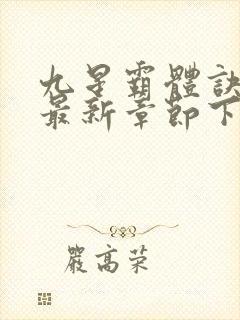 九星霸體訣
最新章節下
嚴高荣